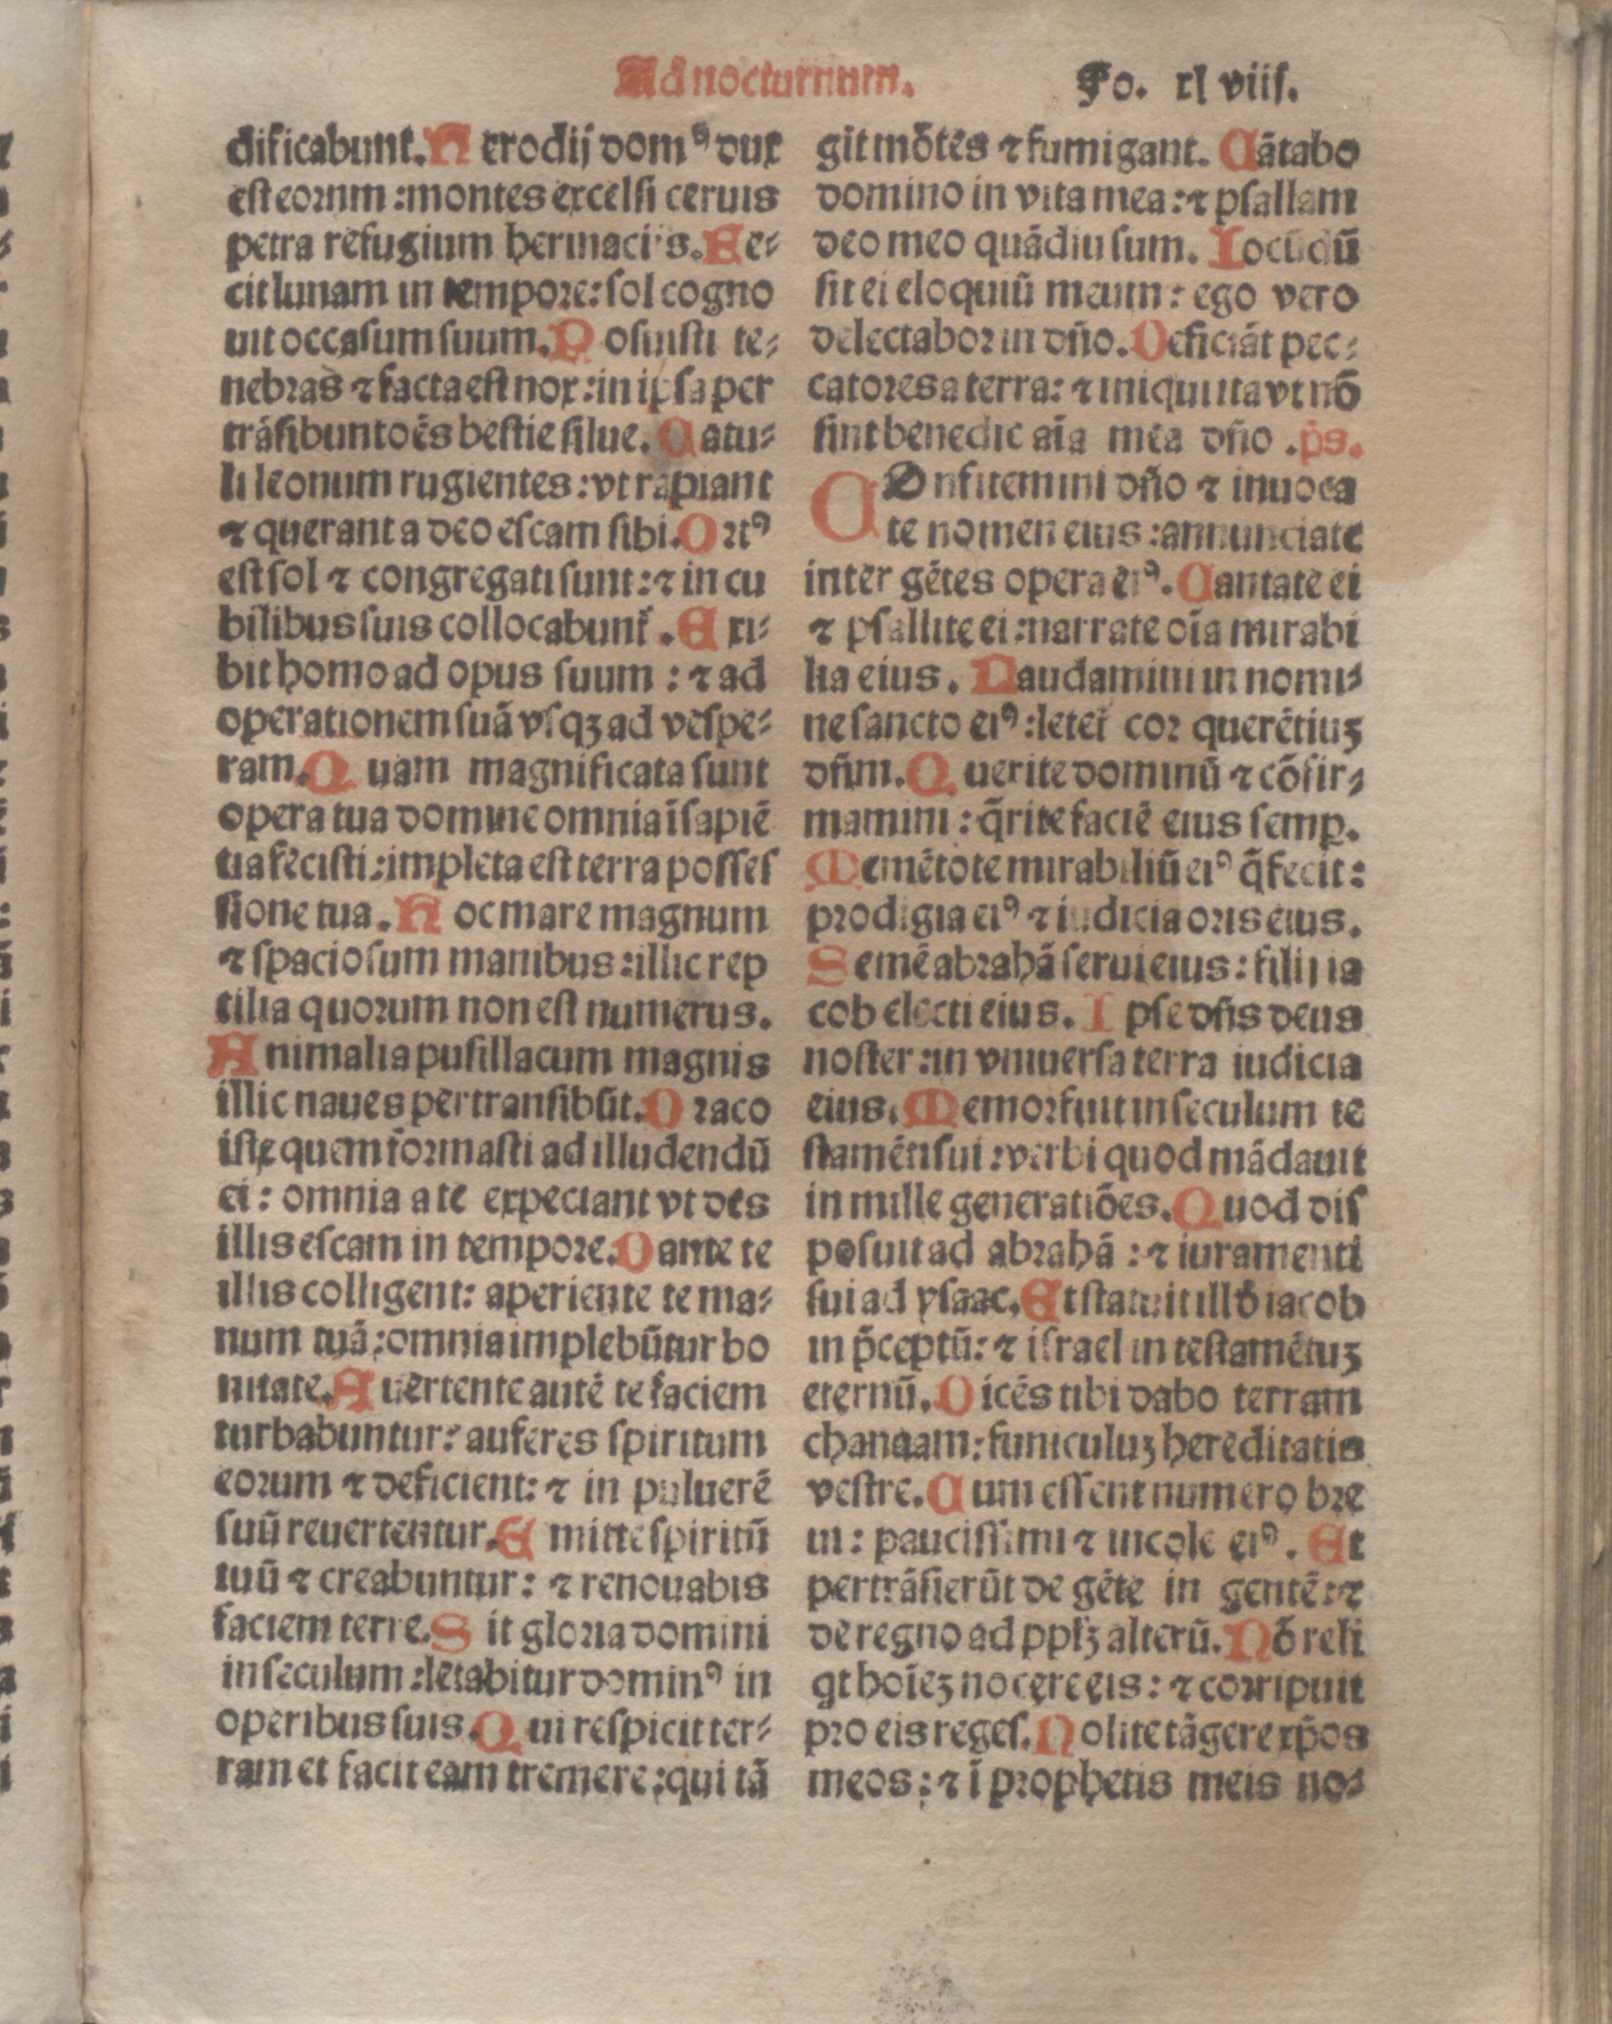 Ad nocturnum.
Fo. xl viij.
dificabunt. Herodij domꝰ dux
est eorum : montes excelsi ceruis
petra refugium hermacijs. Fe-
cit lunam in tempore : sol cogno
uit occasum suum. Posuisti te-
nebras ⁊ facta est nox : in ipsa per
trāsibunt oēs bestie silue. Catu-
li leonum rugientes : vt rapiant
⁊ querant a deo escam sibi. Ortꝰ
est sol ⁊ congregati sunt : ⁊ in cu
bilibus suis collocabunt̄. Exi-
bit homo ad opus suum : ⁊ ad
operationem suā vsqꝫ ad vespe-
ram. Quam magnificata sunt
opera tua domine omnia ī sapiē
tia fecisti : impleta est terra posses
sione tua. Hoc mare magnum
⁊ spaciosum manibus : illic rep
tilia quorum non est numerus.
Animalia pusilla cum magnis
illic naues pertransibūt. Draco
iste quem formasti ad illudendū
ei : omnia a te expectant vt des
illis escam in tempore. Dante te
illis colligent : aperiente te ma-
num tuā : omnia implebūtur bo
nitate. Auertente autē te faciem
turbabuntur : auferes spiritum
eorum ⁊ deficient : ⁊ in puluerē
suū reuertentur. Emitte spiritū
tuū ⁊ creabuntur : ⁊ renouabis
faciem terre. Sit gloria domini
in seculum : letabitur dominꝰ in
operibus suis. Qui respicit ter-
ram et facit eam tremere : qui tā
git mōtes ⁊ fumigant. Cātabo
domino in vita mea : ⁊ psallam
deo meo quādiu sum. Iocūdū
sit ei eloquiū meum : ego vero
delectabor in dn̄o. Deficiāt pec-
catores a terra : ⁊ iniqui ita vt nō
sint benedic aīa mea dn̄o. ps.
COnfitemini dn̄o ⁊ inuoca
te nomen eius : annunciate
inter gētes opera eiꝰ. Cantate ei
⁊ psallite ei : narrate oīa mirabi
lia eius. Laudamini in nomi-
ne sancto eiꝰ : letet̄ cor querētiuꝫ
dn̄m. Querite dominū ⁊ cōfir-
mamini : q̄rite faciē eius semꝑ.
Memētote mirabiliū eiꝰ q̄ fecit :
prodigia eiꝰ ⁊ iudicia oris eius.
Semē abrahā serui eius : filij ia
cob electi eius. Ipse dn̄s deus
noster : in vniuersa terra iudicia
eius. Memor fuit in seculum te
stamēti sui : verbi quod mādauit
in mille generatiōes. Quod dis
posuit ad abrahā : ⁊ iuramenti
sui ad ysaac. Et statuit illō iacob
in p̄ceptū : ⁊ israel in testamētuꝫ
eternū. Dicēs tibi dabo terram
chanaam : funiculuꝫ hereditatis
vestre. Cum essent numero bre
ui : paucissimi ⁊ incole eiꝰ. Et
pertrāsierūt de gēte in gentē : ⁊
de regno ad pplꝫ alterū. Nō reli
qt hoīeꝫ nocere eis : ⁊ corripuit
pro eis reges. Nolite tāgere xp̄os
meos : ⁊ ī prophetis meis no-